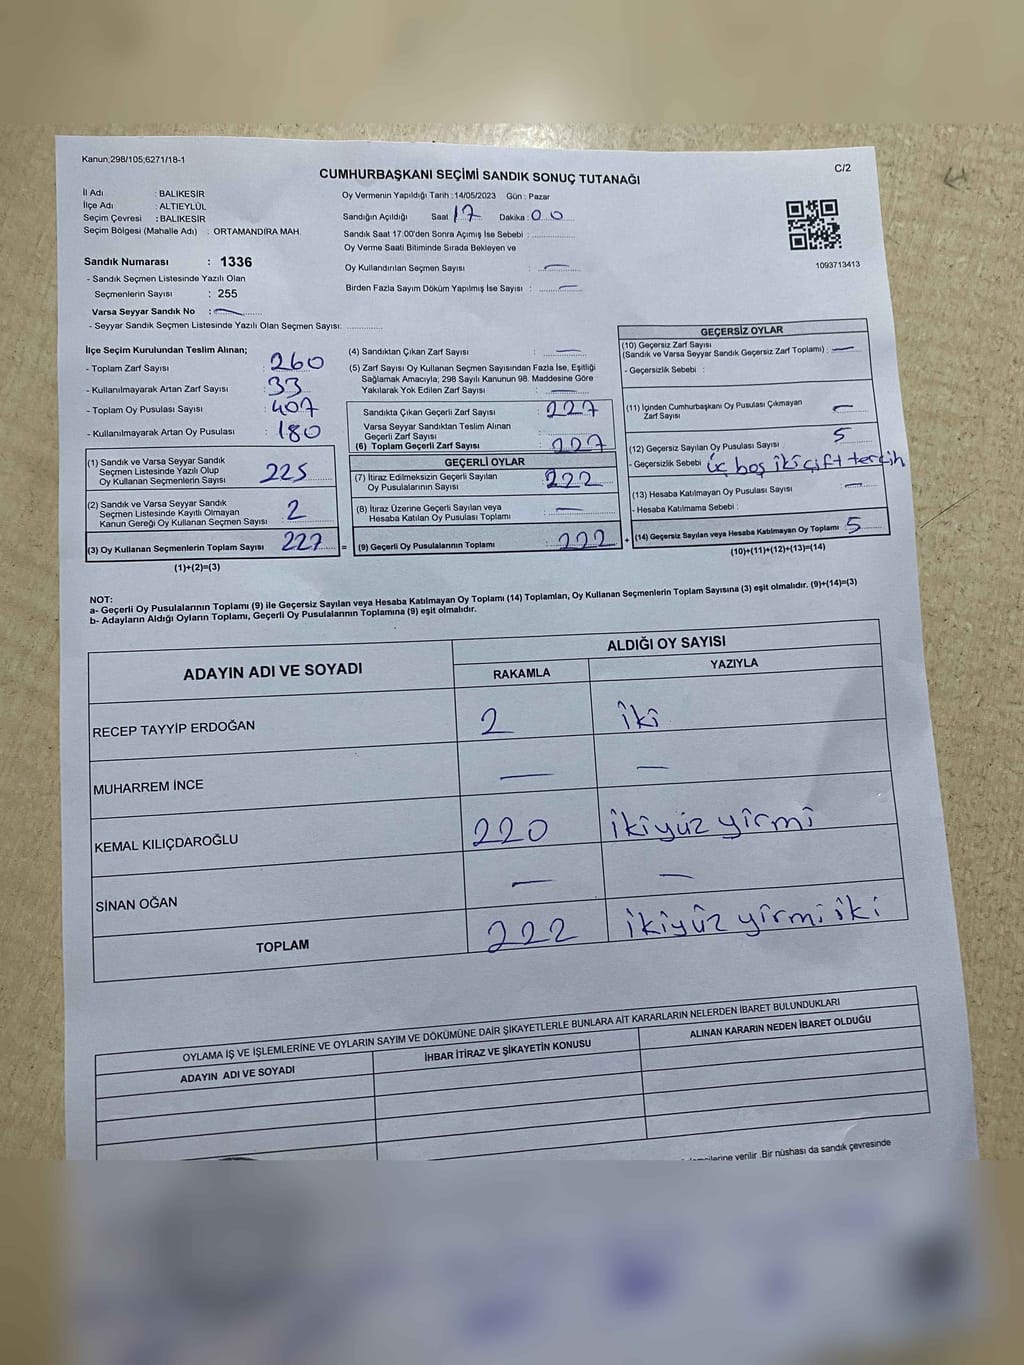 Kanun;298/105;6271/18-1
C/2
CUMHURBAŞKANI SEÇİMİ SANDIK SONUÇ TUTANAĞI
İl Adı : BALIKESİR
İlçe Adı : ALTIEYLÜL
Seçim Çevresi : BALIKESİR
Seçim Bölgesi (Mahalle Adı) : ORTAMANDIRA MAH.
Sandık Numarası : 1336
- Sandık Seçmen Listesinde Yazılı Olan
Seçmenlerin Sayısı : 255
Varsa Seyyar Sandık No : —
- Seyyar Sandık Seçmen Listesinde Yazılı Olan Seçmen Sayısı: ..............
Oy Vermenin Yapıldığı Tarih :14/05/2023 Gün : Pazar
Sandığın Açıldığı Saat 17 Dakika : 00
Sandık Saat 17:00'den Sonra Açımış İse Sebebi : ..............
Oy Verme Saati Bitiminde Sırada Bekleyen ve
Oy Kullandırılan Seçmen Sayısı : —
Birden Fazla Sayım Döküm Yapılmış İse Sayısı : —
1093713413
İlçe Seçim Kurulundan Teslim Alınan;
- Toplam Zarf Sayısı : 260
- Kullanılmayarak Artan Zarf Sayısı : 33
- Toplam Oy Pusulası Sayısı : 407
- Kullanılmayarak Artan Oy Pusulası : 180
(1) Sandık ve Varsa Seyyar Sandık
Seçmen Listesinde Yazılı Olup
Oy Kullanan Seçmenlerin Sayısı 225
(2) Sandık ve Varsa Seyyar Sandık
Seçmen Listesinde Kayıtlı Olmayan
Kanun Gereği Oy Kullanan Seçmen Sayısı 2
(3) Oy Kullanan Seçmenlerin Toplam Sayısı 227 =
(1)+(2)=(3)
(4) Sandıktan Çıkan Zarf Sayısı : —
(5) Zarf Sayısı Oy Kullanan Seçmen Sayısından Fazla İse, Eşitliği
Sağlamak Amacıyla; 298 Sayılı Kanunun 98. Maddesine Göre
Yakılarak Yok Edilen Zarf Sayısı : —
Sandıkta Çıkan Geçerli Zarf Sayısı : 227
Varsa Seyyar Sandıktan Teslim Alınan
Geçerli Zarf Sayısı :
(6) Toplam Geçerli Zarf Sayısı : 227
GEÇERLİ OYLAR
(7) İtiraz Edilmeksizin Geçerli Sayılan
Oy Pusulalarının Sayısı : 222
(8) İtiraz Üzerine Geçerli Sayılan veya
Hesaba Katılan Oy Pusulası Toplamı : —
(9) Geçerli Oy Pusulalarının Toplamı : 222 +
GEÇERSİZ OYLAR
(10) Geçersiz Zarf Sayısı
(Sandık ve Varsa Seyyar Sandık Geçersiz Zarf Toplamı) : —
- Geçersizlik Sebebi :
(11) İçinden Cumhurbaşkanı Oy Pusulası Çıkmayan
Zarf Sayısı —
(12) Geçersiz Sayılan Oy Pusulası Sayısı : 5
- Geçersizlik Sebebi üç boş iki çift tercih
(13) Hesaba Katılmayan Oy Pusulası Sayısı : —
- Hesaba Katılmama Sebebi :
(14) Geçersiz Sayılan veya Hesaba Katılmayan Oy Toplamı 5
(10)+(11)+(12)+(13)=(14)
NOT:
a- Geçerli Oy Pusulalarının Toplamı (9) ile Geçersiz Sayılan veya Hesaba Katılmayan Oy Toplamı (14) Toplamları, Oy Kullanan Seçmenlerin Toplam Sayısına (3) eşit olmalıdır. (9)+(14)=(3)
b- Adayların Aldığı Oyların Toplamı, Geçerli Oy Pusulalarının Toplamına (9) eşit olmalıdır.
ADAYIN ADI VE SOYADI
ALDIĞI OY SAYISI
RAKAMLA YAZIYLA
RECEP TAYYİP ERDOĞAN 2 iki
MUHARREM İNCE — —
KEMAL KILIÇDAROĞLU 220 ikiyüz yirmi
SİNAN OĞAN — —
TOPLAM 222 ikiyüz yirmi iki
OYLAMA İŞ VE İŞLEMLERİNE VE OYLARIN SAYIM VE DÖKÜMÜNE DAİR ŞİKAYETLERLE BUNLARA AİT KARARLARIN NELERDEN İBARET BULUNDUKLARI
ADAYIN ADI VE SOYADI İHBAR İTİRAZ VE ŞİKAYETİN KONUSU ALINAN KARARIN NEDEN İBARET OLDUĞU
verilir .Bir nüshası da sandık çevresinde